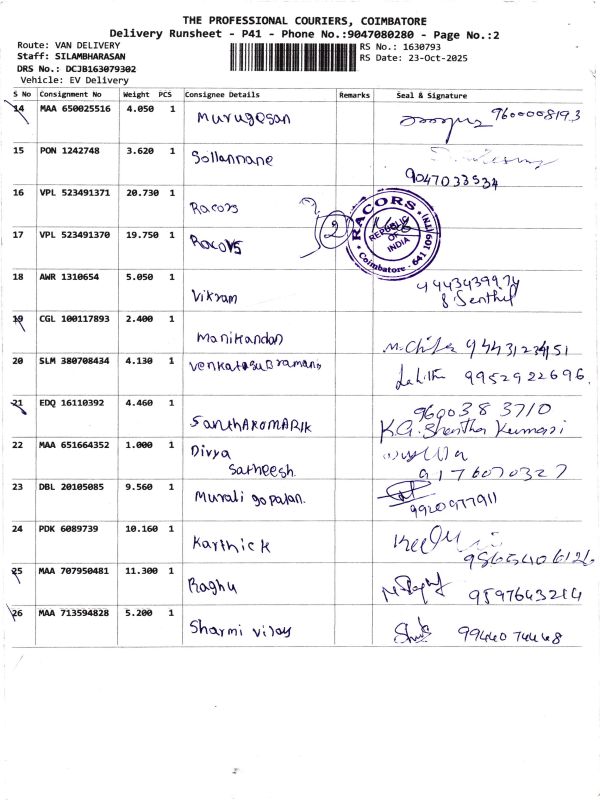 THE PROFESSIONAL COURIERS, COIMBATORE
Delivery Runsheet - P41 - Phone No.:9047080280 - Page No.:2
Route: VAN DELIVERY
Staff: SILAMBHARASAN
DRS No.: DCJB163079302
Vehicle: EV Delivery
RS No.: 1630793
RS Date: 23-Oct-2025
S No Consignment No Weight PCS Consignee Details Remarks Seal & Signature
14 MAA 650025516 4.050 1 Murugesan 9600008193
15 PON 1242748 3.620 1 Sollannane 9047033534
16 VPL 523491371 20.730 1 Racors
2
RACORS
REPUBLIC OF INDIA
Coimbatore - 641 109 (TN)
17 VPL 523491370 19.750 1 Racors
18 AWR 1310654 5.050 1 Vikram 9443439974
S. Senthil
19 CGL 100117893 2.400 1 Manikandan 9443123451
20 SLM 380708434 4.130 1 Venkatasubramani Lalitha 9952922696.
21 EDQ 16110392 4.460 1 SANTHAKUMARIK 9600383710
K.G. Shantha Kumari
22 MAA 651664352 1.000 1 Divya
Satheesh 9176070327
23 DBL 20105085 9.560 1 Murali gopalan. 9920977911
24 PDK 6089739 10.160 1 Karthick 9865406126
25 MAA 707950481 11.300 1 Raghu 9597643214
26 MAA 713594828 5.200 1 Sharmi vijay 9944074448